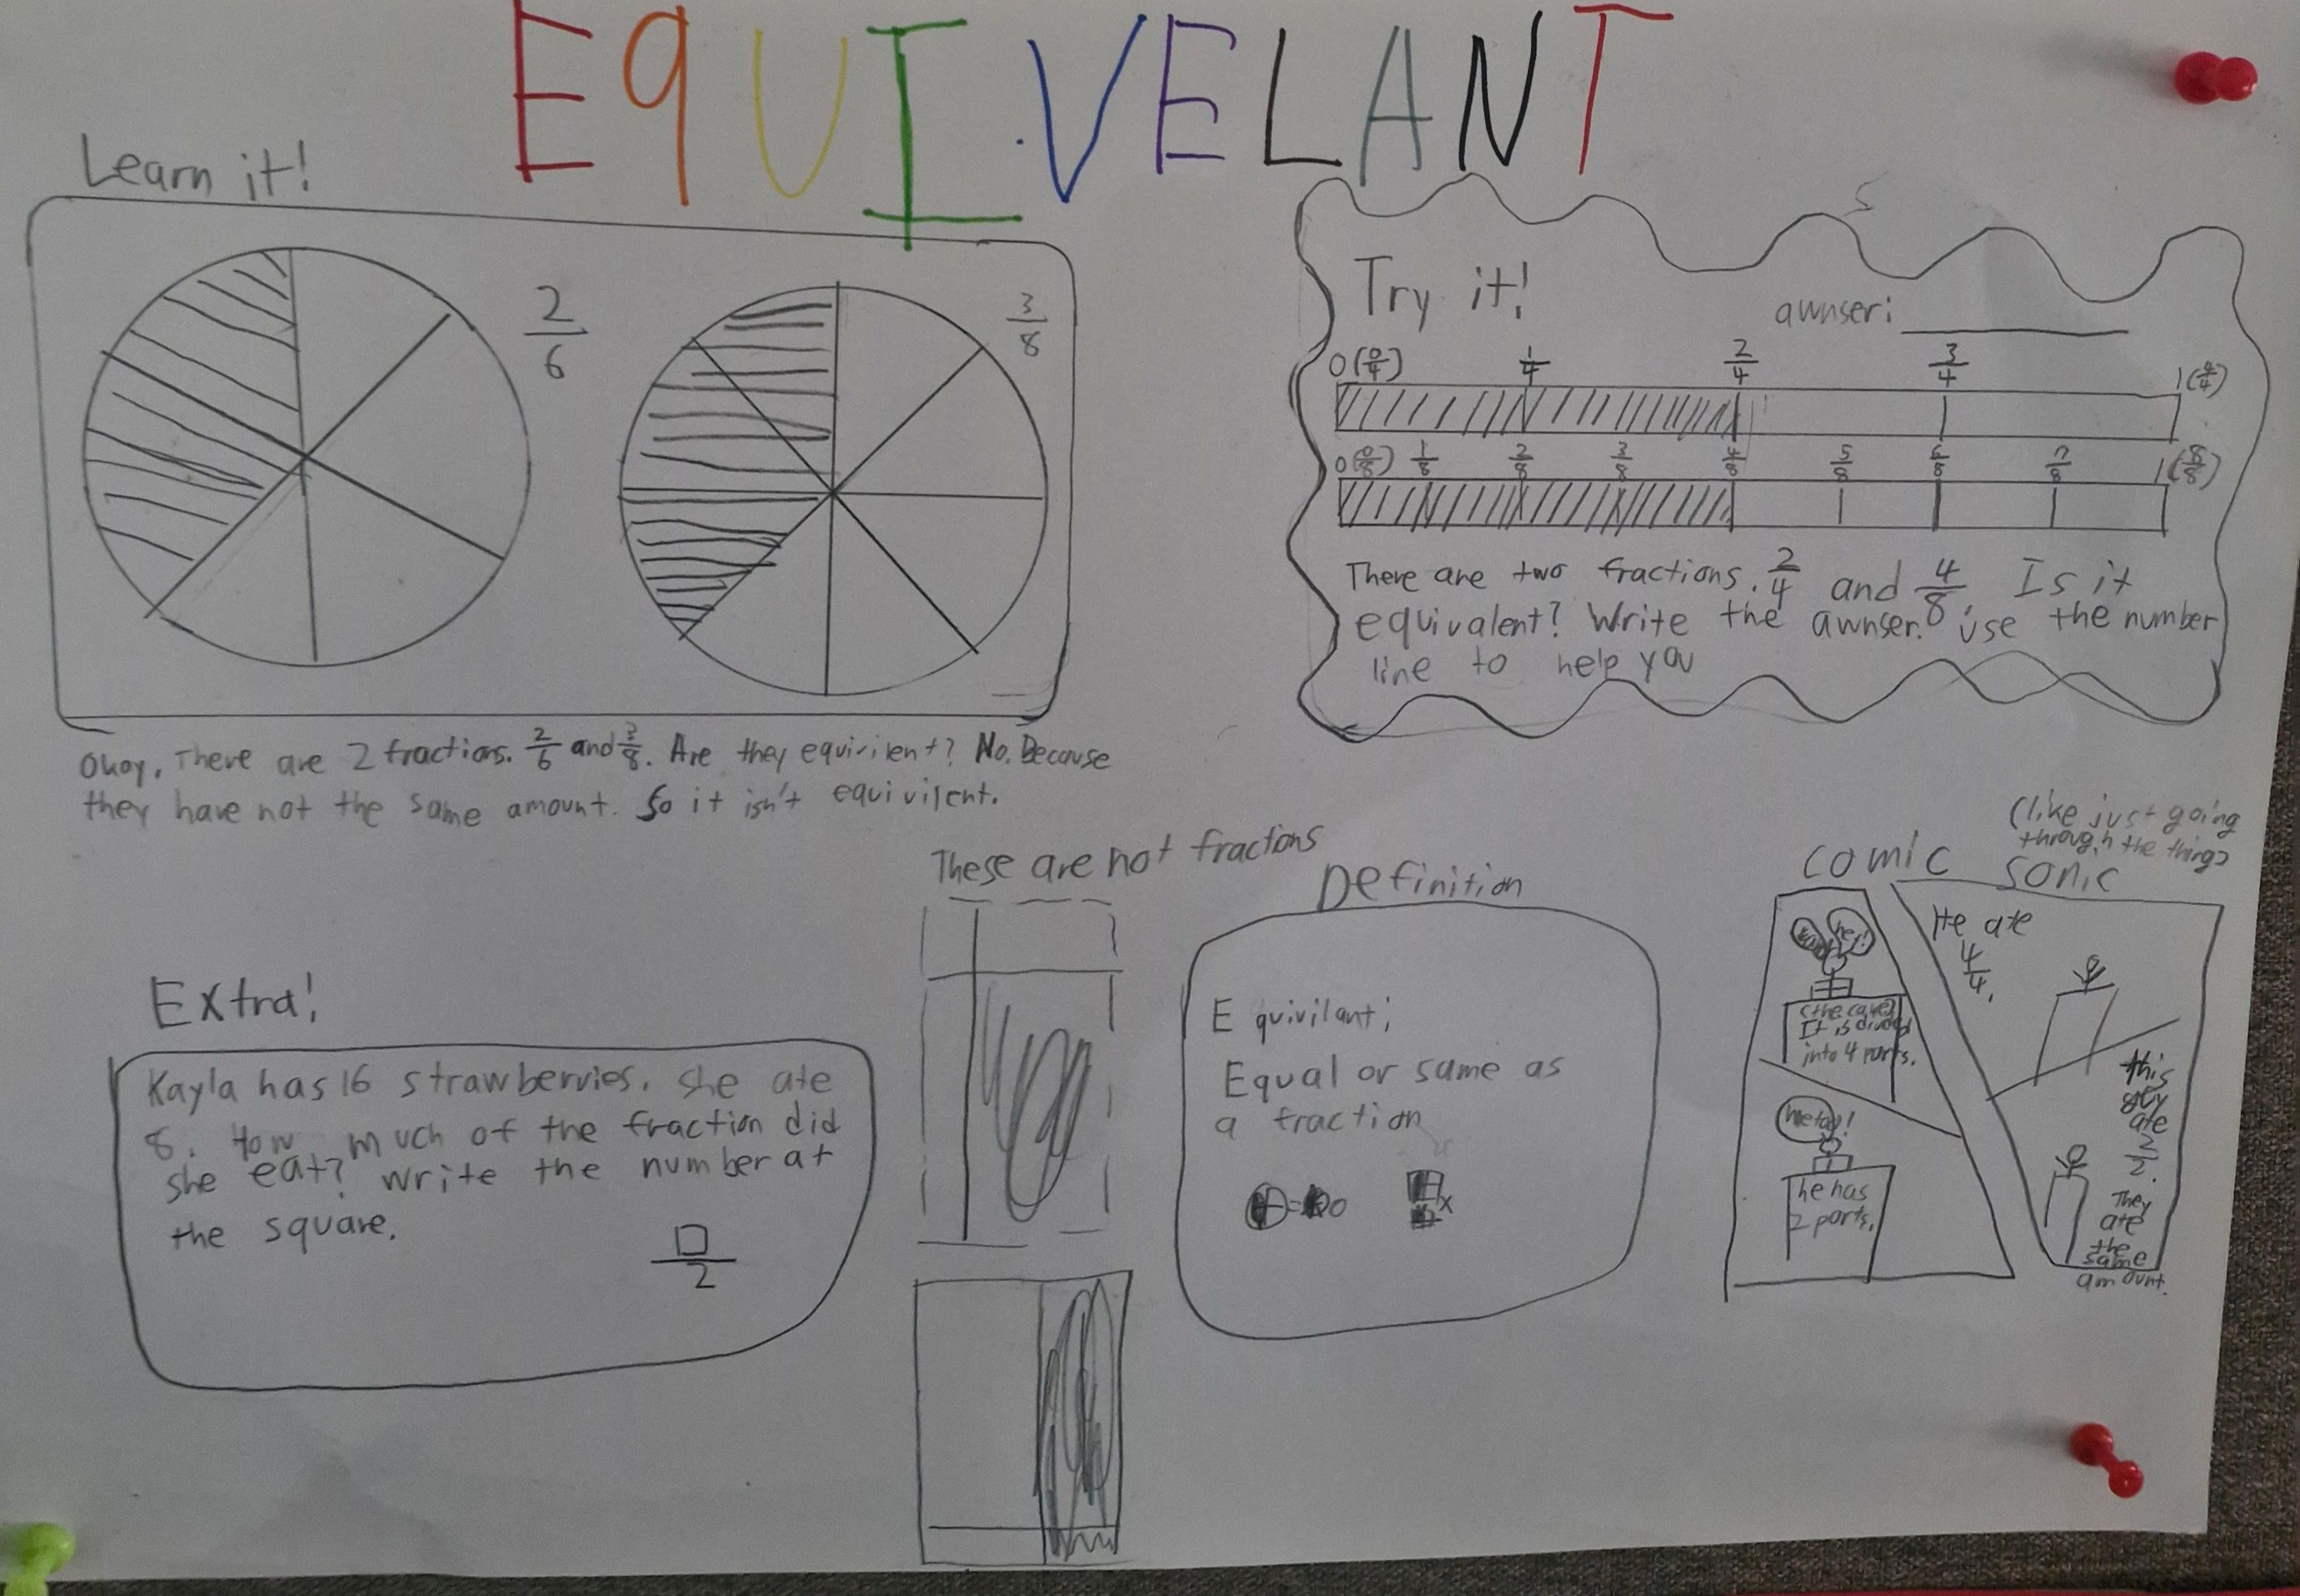 EqUIVELANT
Learn it!
2/6
3/8
Okay, There are 2 fractions. 2/6 and 3/8. Are they equivilent? No. Because
they have not the same amount. So it isn't equivilent.
Try it!
awnser:
0 (0/4) 1/4 2/4 3/4 1 (4/4)
0 (0/8) 1/8 2/8 3/8 4/8 5/8 6/8 7/8 1 (8/8)
There are two fractions. 2/4 and 4/8. Is it
equivalent? Write the awnser. use the number
line to help you
Extra!
Kayla has 16 strawberries. She ate
8. How much of the fraction did
she eat? Write the number at
the square.
□/2
These are not fractions
Definition
Equivilant;
Equal or same as
a fraction
comic sonic
(like just going
through the things
hey!
(the cake)
It is divided
into 4 parts.
He ate
4/4.
me too!
he has
2 parts.
this
guy
ate
2/2.
They
ate
the
same
amount.